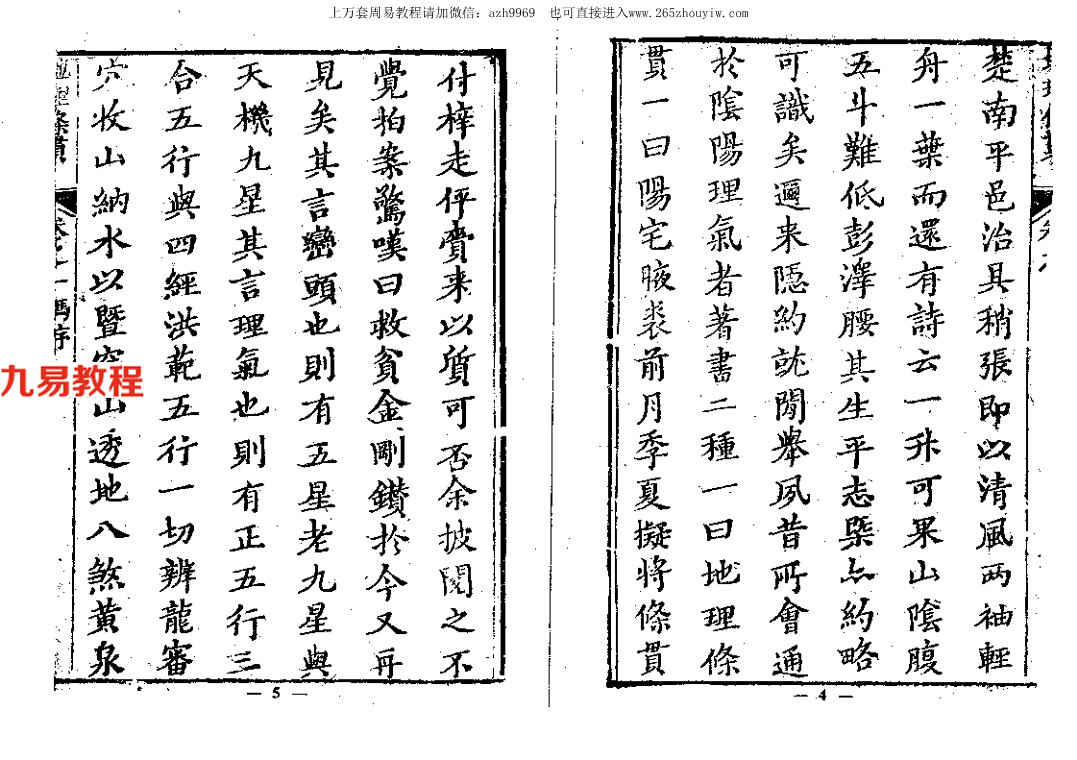 上万套周易教程请加微信：azh9969　也可直接进入www.265zhouyiw.com
楚南平邑治具稍張即以清風兩袖輕
舟一葉而還有詩云一升可果山陰腹
五斗難低彭澤腰其生平志槩亦約略
可識矣邇来隱約就閒舉夙昔所會通
於陰陽理氣者著書二種一曰地理條
貫一曰陽宅腋裘前月季夏擬将條貫
— 4 —
付梓走伻賫来以質可否余披閱之不
覺拍案驚嘆曰救貧金剛鑚於今又再
見矣其言巒頭也則有五星老九星與
天機九星其言理氣也則有正五行三
合五行與四經洪範五行一切辨龍審
穴收山納水以暨穿山透地八煞黃泉
條貫
馮序
— 5 —
九易教程